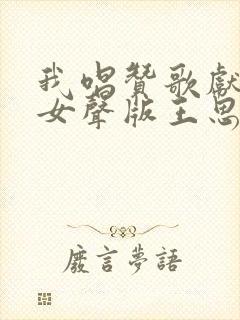 我唱赞歌獻
女聲版王思
廢言夢語